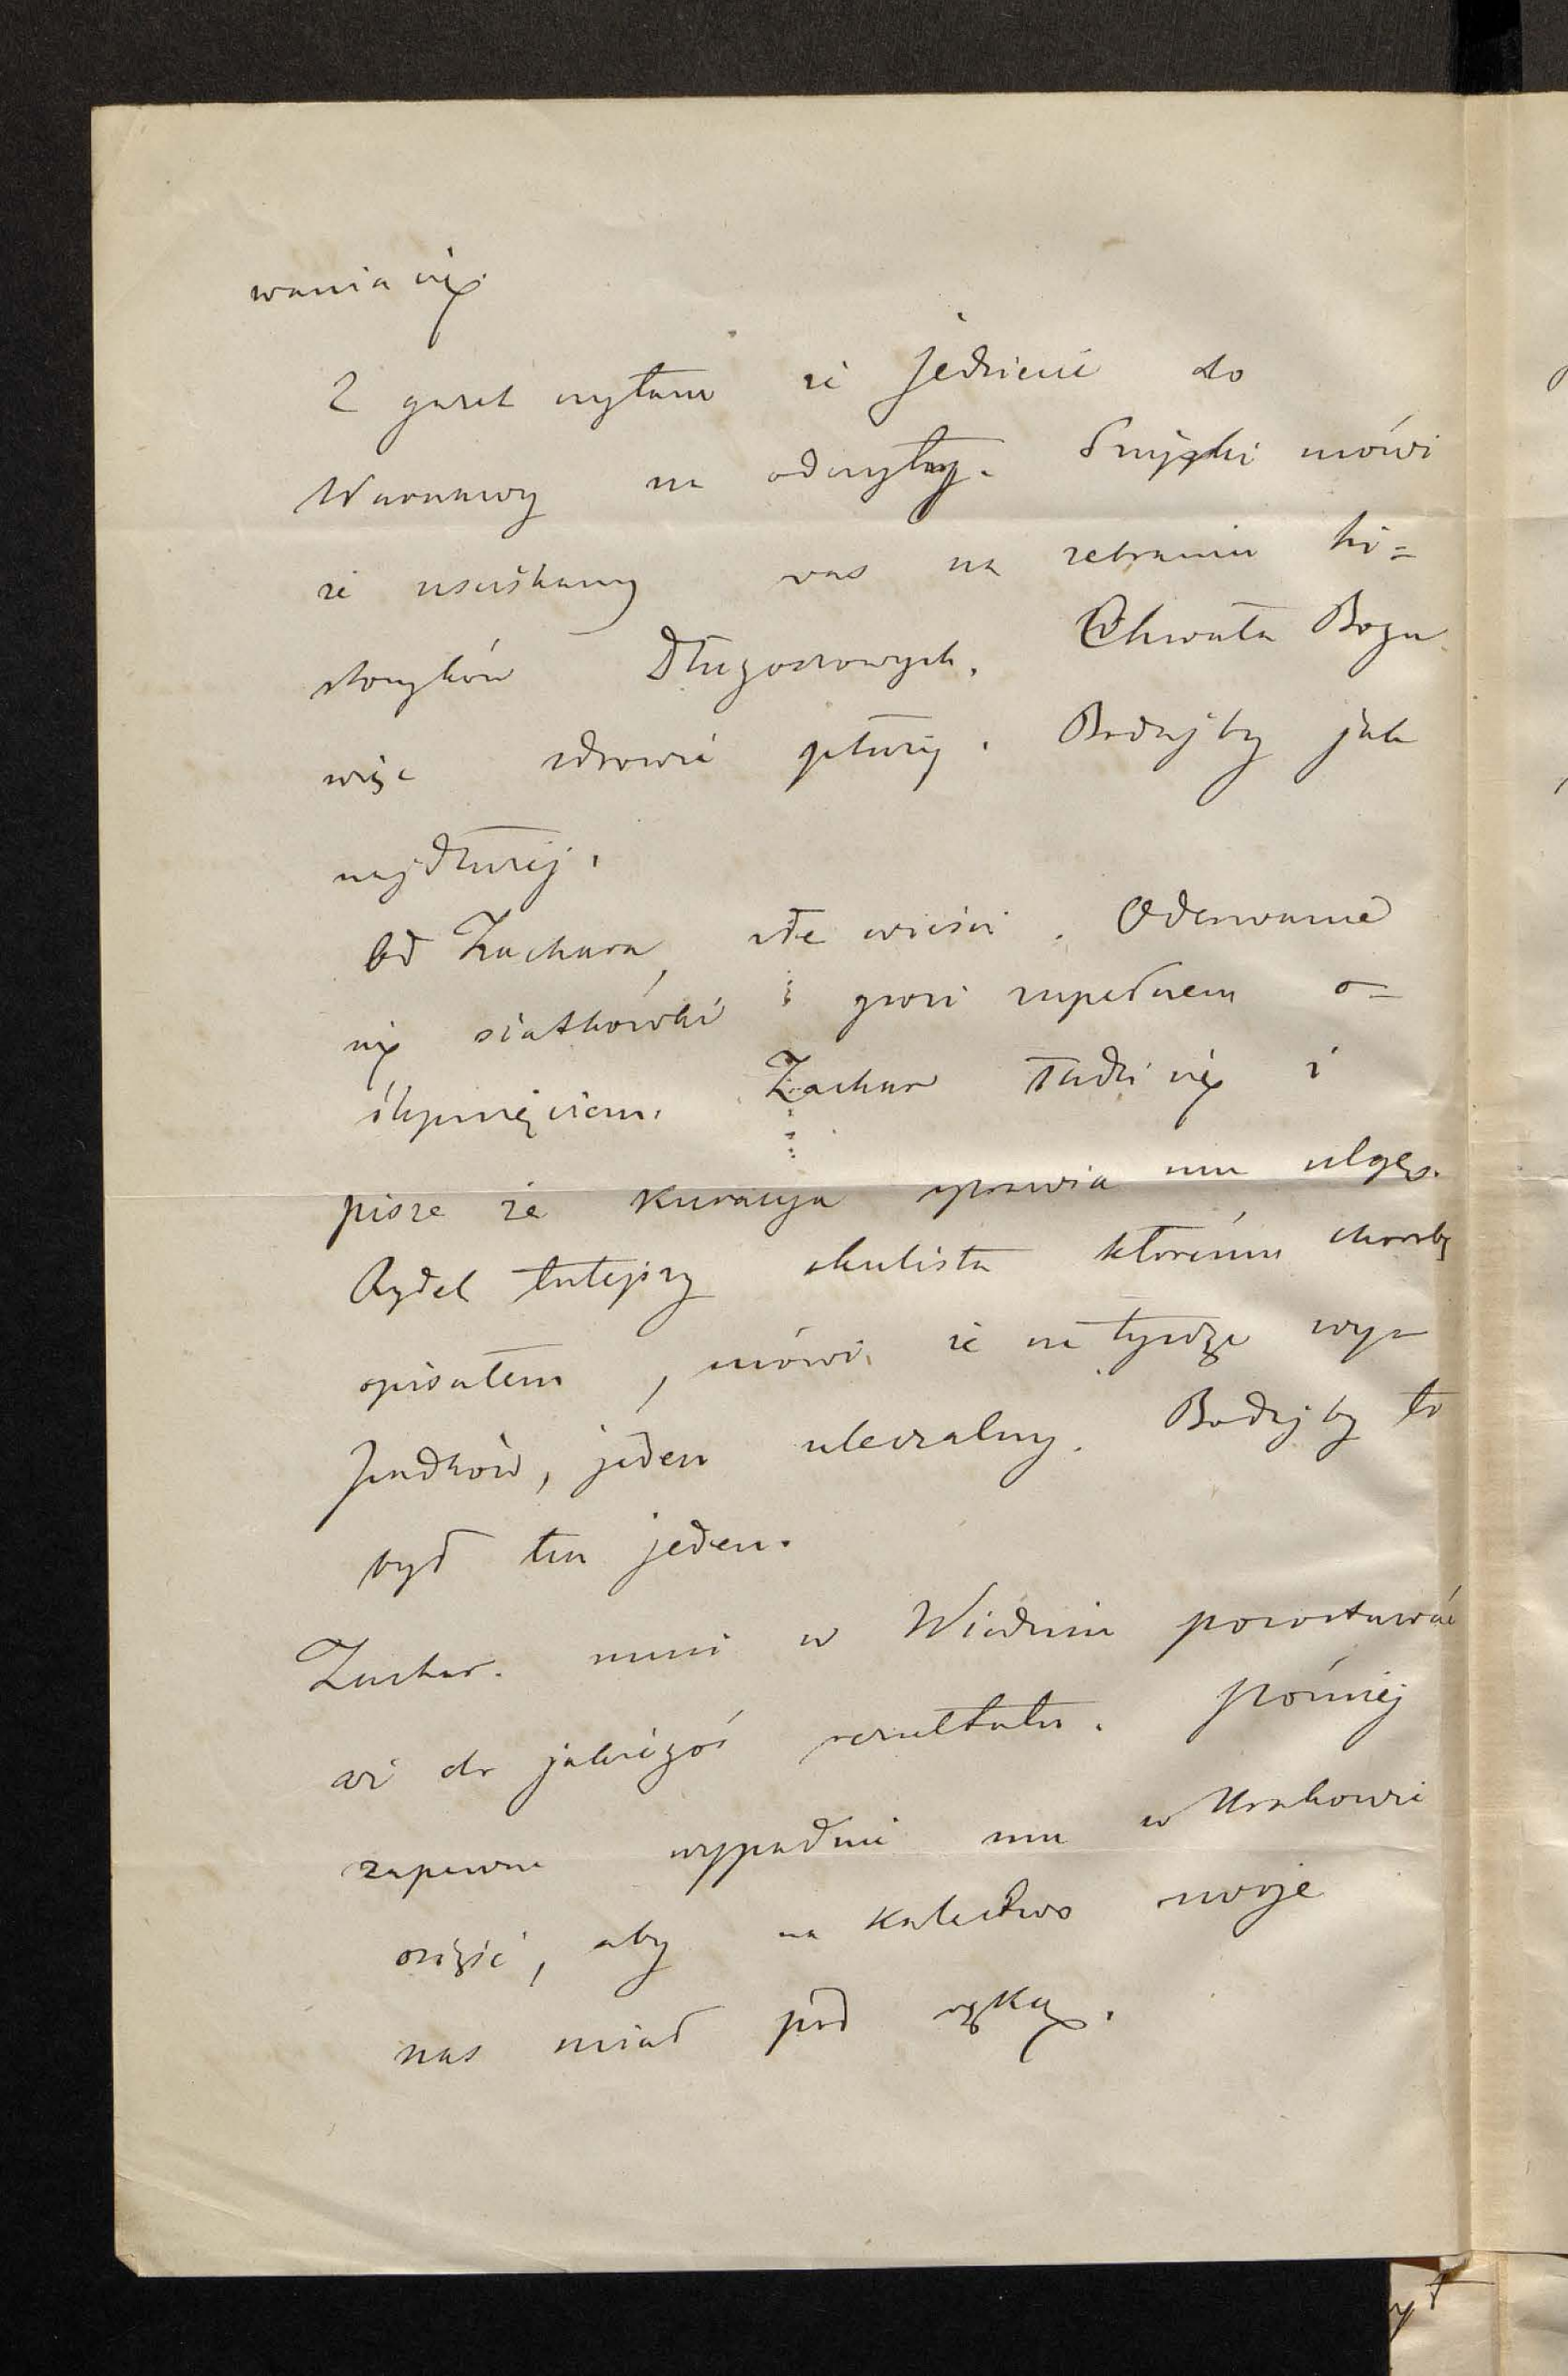 wania się.
Z gazet czytam że jedziecie do
Warszawy na odczyty. Smyski mówi
że uściskamy was na zebraniu hi=
storyków Długoszowych. Chwała Bogu
więc zdrowie płuży. Bodajby jak
najdłużej.
Od Zachara, złe wieści. Oderwanie
się siatkówki i grozi zupełnem o=
ślepnięciem. Zachar łudzi się i
pisze że kuracyja sprawia mu ulgę.
Rydel tutejszy okulista któremu chorobę
opisałem, mówi że na tysiąc wy=
padków, jeden uleczalny. Bodajby to
był ten jeden.
Zachar. musi w Wiedniu pozostawać
aż do jakiegoś rezultatu. Później
zapewne wypadnie mu w Krakowie
osiąść, aby na kalectwo swoje
nas miał pod ręką.